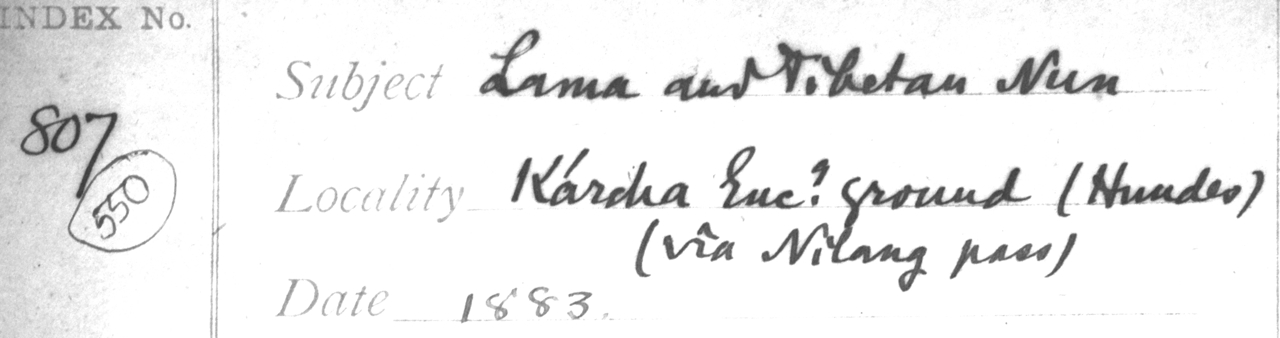 INDEX No.
807
550
Subject Lama and Tibetan Nun
Locality Kárcha Enc.g ground (Hundes)
(via Nilang pass)
Date 1883.